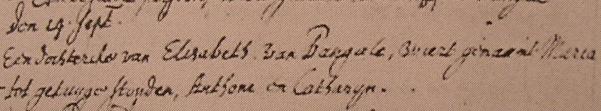 den 19 Sept.
Een dochterche van Elisabeth van Bangale, wiert genaemt Maria
tot getuijge stonden, Anthone en Catharijn.